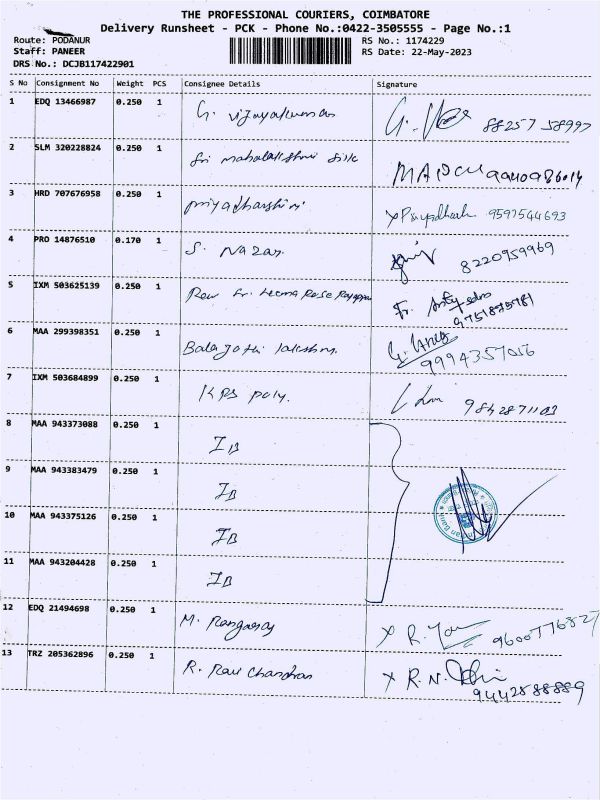 THE PROFESSIONAL COURIERS, COIMBATORE
Delivery Runsheet - PCK - Phone No.:0422-3505555 - Page No.:1
Route: PODANUR RS No.: 1174229
Staff: PANEER RS Date: 22-May-2023
DRS No.: DCJB117422901
S No Consignment No Weight PCS Consignee Details Signature
1 EDQ 13466987 0.250 1 G. Vijayakumar
2 SLM 320228824 0.250 1 Sri mahalakshmi Silk
3 HRD 707676958 0.250 1 priyadharshini 9597544693
4 PRO 14876510 0.170 1 S. Nazar. 8220959969
5 IXM 503625139 0.250 1 Rev Sr. Leema Rose
6 MAA 299398351 0.250 1 9994357056
7 IXM 503684899 0.250 1 KPS poly.
8 MAA 943373088 0.250 1 IB
9 MAA 943383479 0.250 1 IB
10 MAA 943375126 0.250 1 IB
11 MAA 943204428 0.250 1 IB
12 EDQ 21494698 0.250 1 M. Rangaraj x R. 9600776827
13 TRZ 205362896 0.250 1 R. Ravi Chandran x R.N.
9442588889